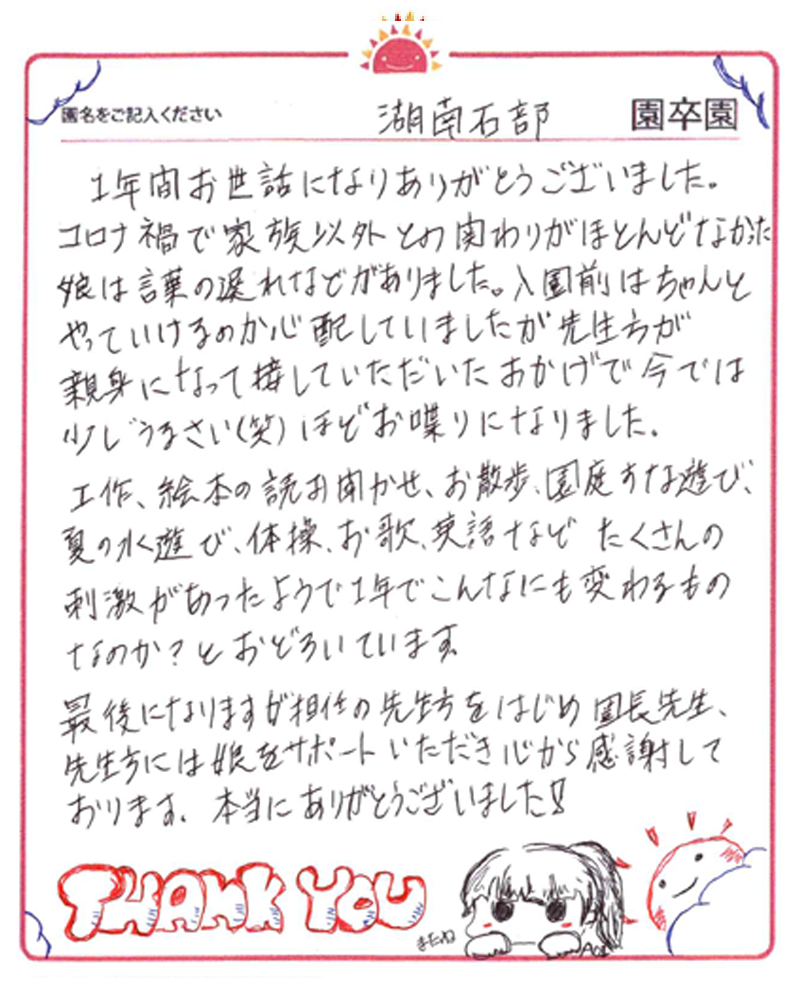 園名をご記入ください 湖南石部 園卒園
1年間お世話になりありがとうございました。
コロナ禍で家族以外との関わりがほとんどなかった
娘は言葉の遅れなどがありました。入園前はちゃんと
やっていけるのか心配していましたが先生方が
親身になって接していただいたおかげで今では
少しうるさい(笑)ほどお喋りになりました。
工作、絵本の読お聞かせ、お散歩、園庭すな遊び、
夏の水遊び、体操、お歌、英語などたくさんの
刺激があったようで1年でこんなにも変わるもの
なのか?とおどろいています。
最後になりますが担任の先生方をはじめ園長先生、
先生方には娘をサポートいただき心から感謝して
おります。本当にありがとうございました!
THANK YOU
またね